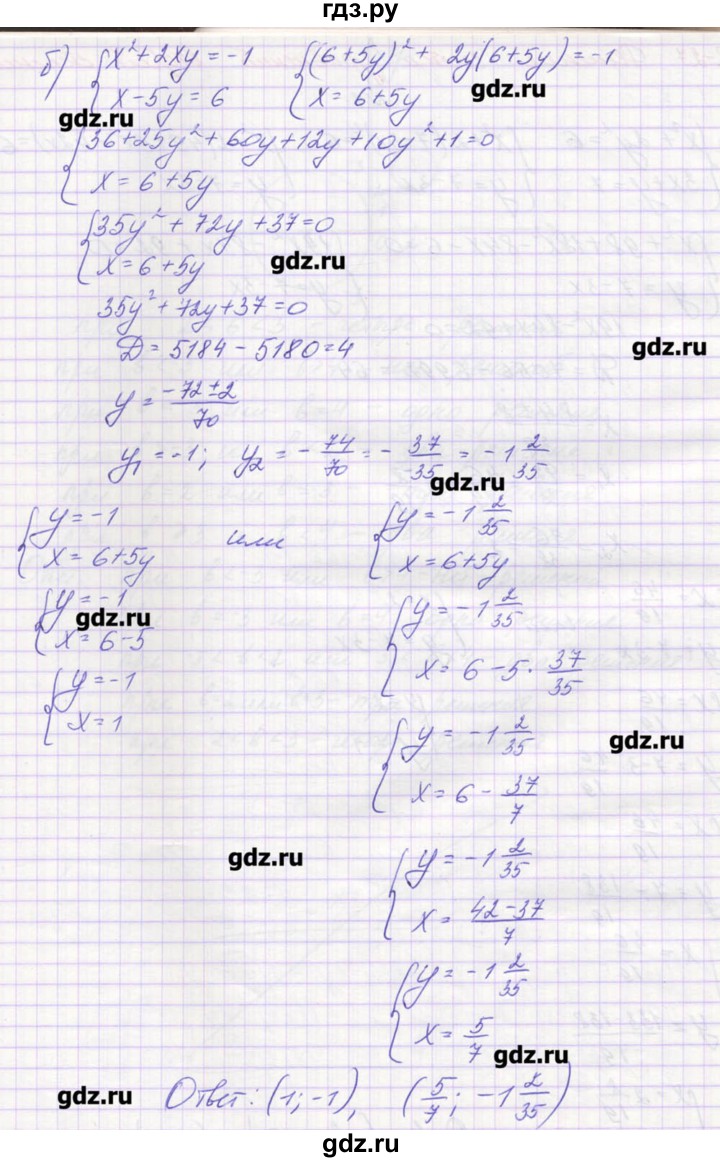 гдз.ру
б) { x² + 2xy = -1     { (6+5y)² + 2y(6+5y) = -1
{ x - 5y = 6     { x = 6+5y
gdz.ru
gdz.ru
{ 36 + 25y² + 60y + 12y + 10y² + 1 = 0
{ x = 6 + 5y
{ 35y² + 72y + 37 = 0
{ x = 6 + 5y
gdz.ru
35y² + 72y + 37 = 0
gdz.ru
D = 5184 - 5180 = 4
y = (-72 ± 2)/70
y₁ = -1; y₂ = -74/70 = -37/35 = -1 2/35
gdz.ru
{ y = -1     или     { y = -1 2/35
{ x = 6+5y     { x = 6+5y
{ y = -1     { y = -1 2/35
gdz.ru
{ x = 6 - 5     { x = 6 - 5 · 37/35
{ y = -1     { y = -1 2/35
{ x = 1     { x = 6 - 37/7
gdz.ru
{ y = -1 2/35
gdz.ru
{ x = (42-37)/7
{ y = -1 2/35
{ x = 5/7
gdz.ru
gdz.ru
Ответ: (1; -1), (5/7; -1 2/35)
gdz.ru